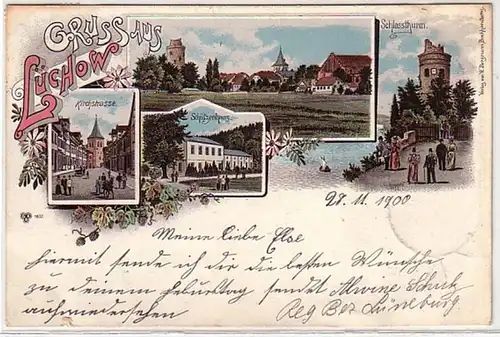 GRUSS AUS
LÜCHOW
Schlossthurm.
Kirchstrasse.
Schützenhaus.
27. 11. 1900
Meine liebe Else
hiermit sende ich dir die besten Wünsche
zu deinem Geburtstag sendet Alwine Schulz
aufwiedersehen Reg Bez Lüneburg